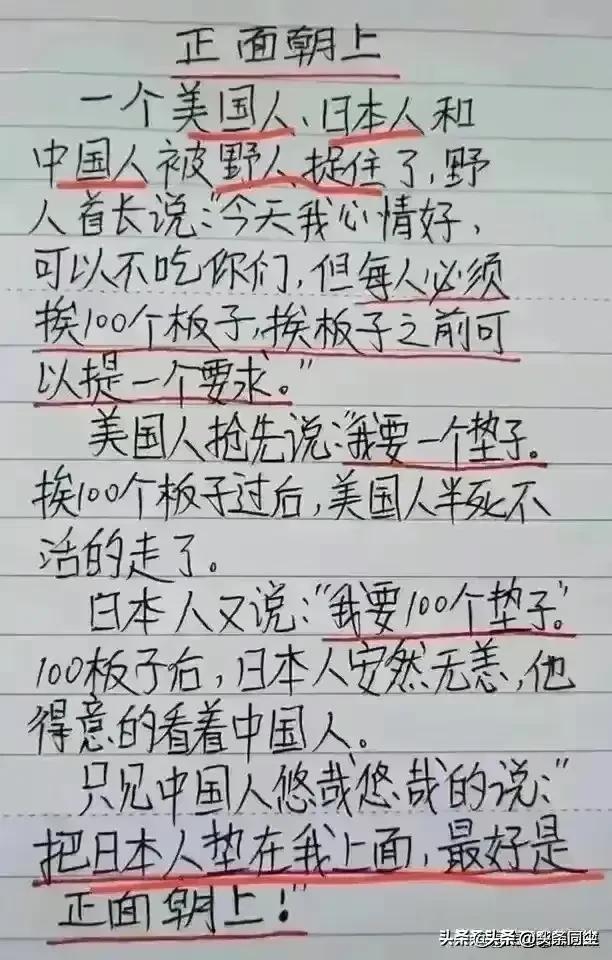 正面朝上
一个美国人、日本人和
中国人被野人捉住了,野
人首长说:"今天我心情好,
可以不吃你们,但每人必须
挨100个板子,挨板子之前可
以提一个要求。"
美国人抢先说:"我要一个垫子。
挨100个板子过后,美国人半死不
活的走了。
日本人又说:"我要100个垫子。"
100板子后,日本人安然无恙,他
得意的看着中国人。
只见中国人悠哉悠哉的说:"
把日本人垫在我上面,最好是
正面朝上!"